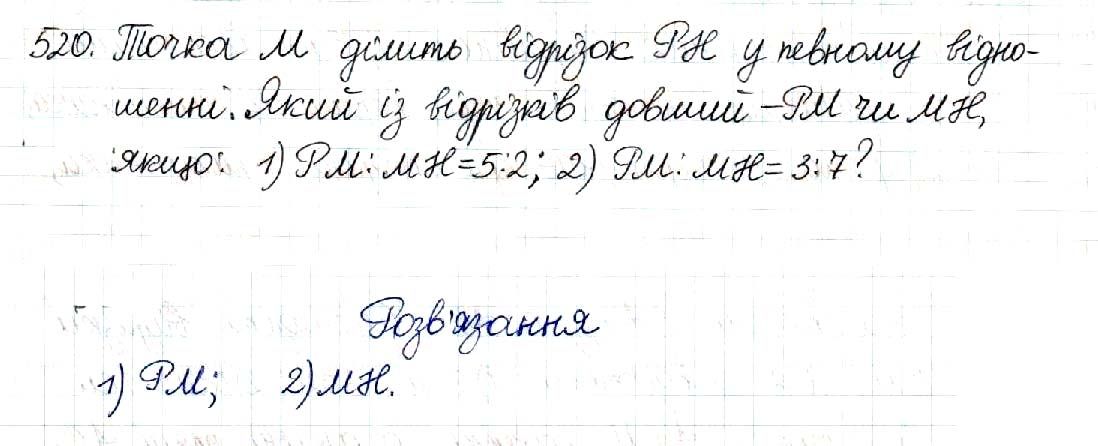 520. Точка М ділить відрізок РН у певному відно-
шенні. Який із відрізків довший – РМ чи МН,
якщо: 1) РМ : МН = 5:2; 2) РМ : МН = 3:7?
Розв'язання
1) РМ; 2) МН.